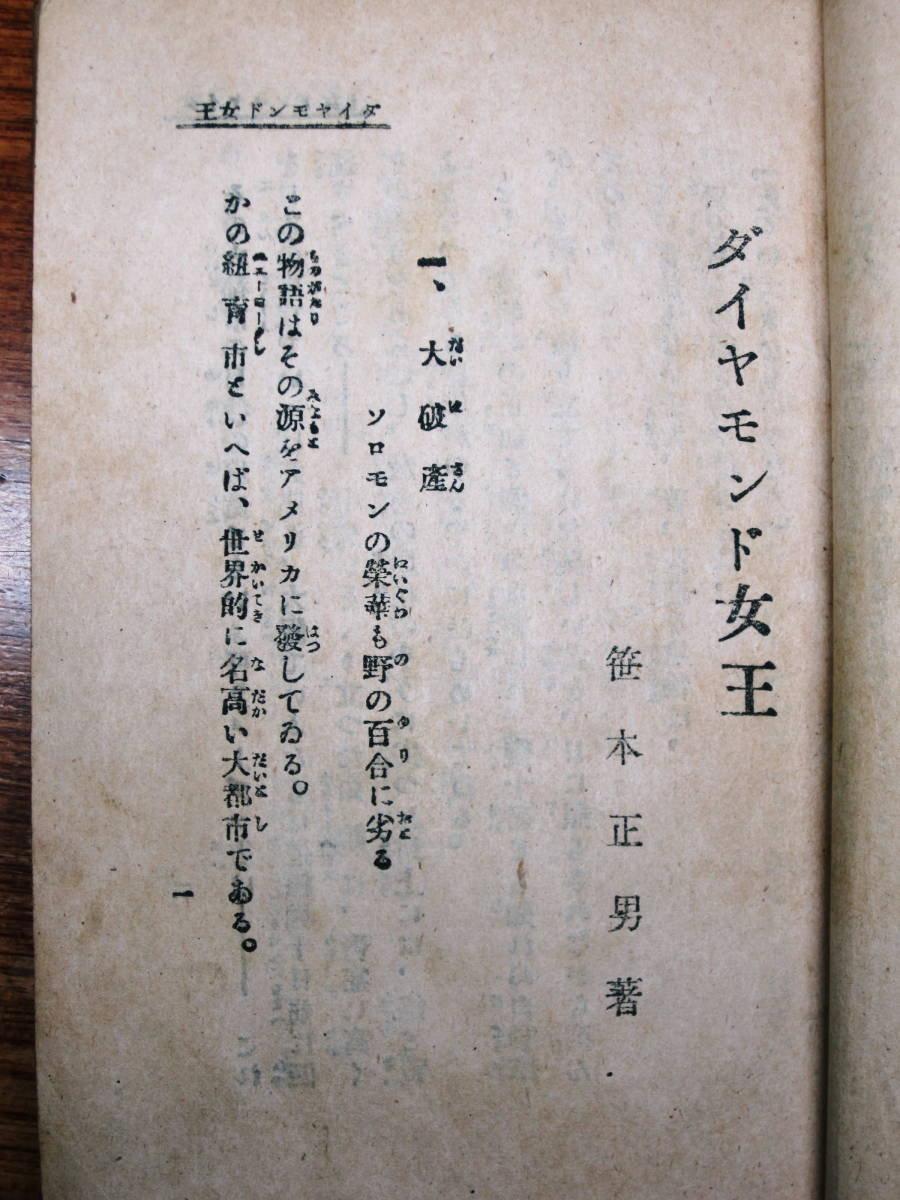 ダイヤモンド女王
笹本正男著
一、大破産
ソロモンの榮華も野の百合に劣る
この物語はその源をアメリカに發してゐる。
かの紐育市といへば、世界的に名高い大都市である。
王女ドンモヤイダ
一